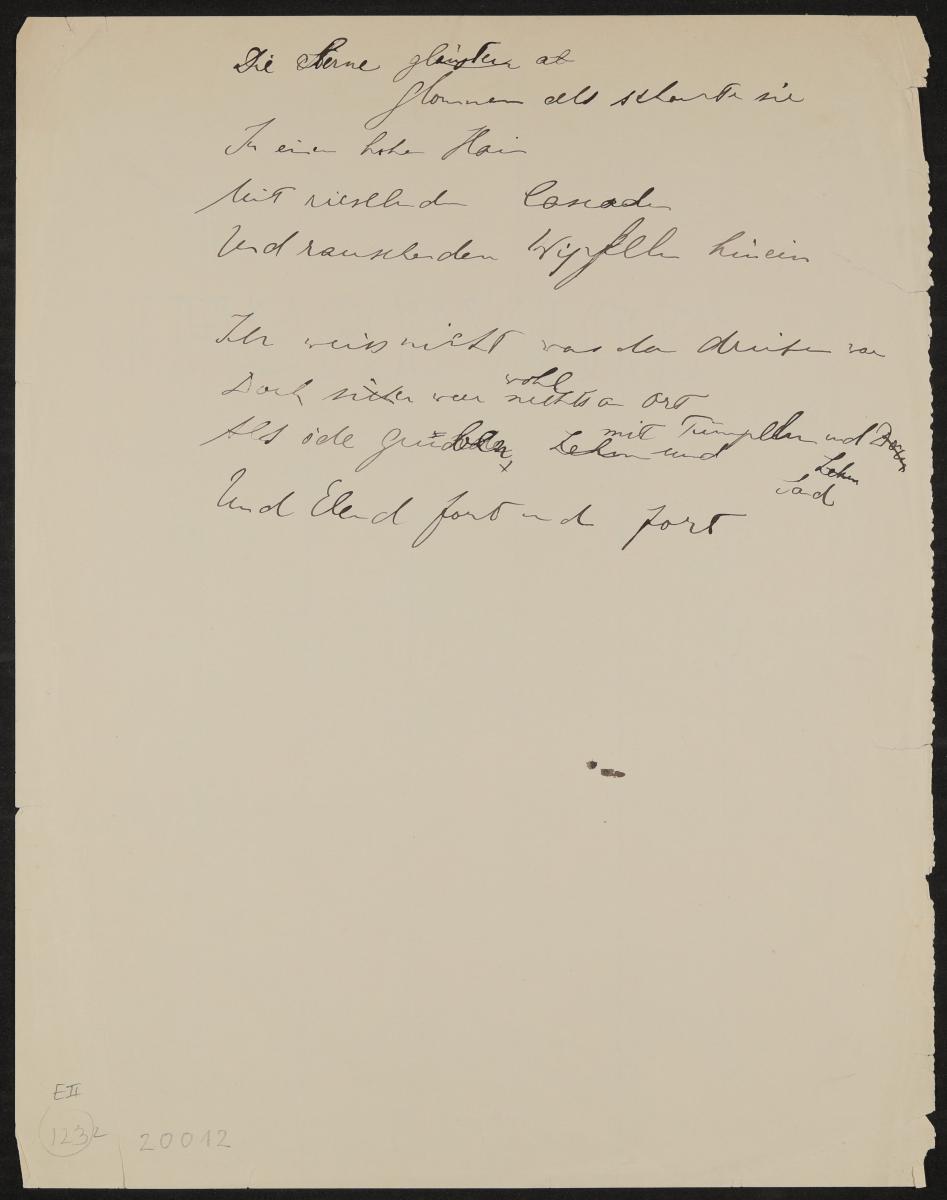 Die Sterne glänzten als
glommen als schaute sie
In einen hohen Hain
Mit rieselnden Cascaden
Und rauschenden Wipfeln hinein
Ich weiss nicht was da drüben war
Doch sicher war wohl nichts an Ort
Als öde Gruben Lehm und mit Tümpeln und
Lehm
Sand
Und Elend fort und fort
EII
1232
20012